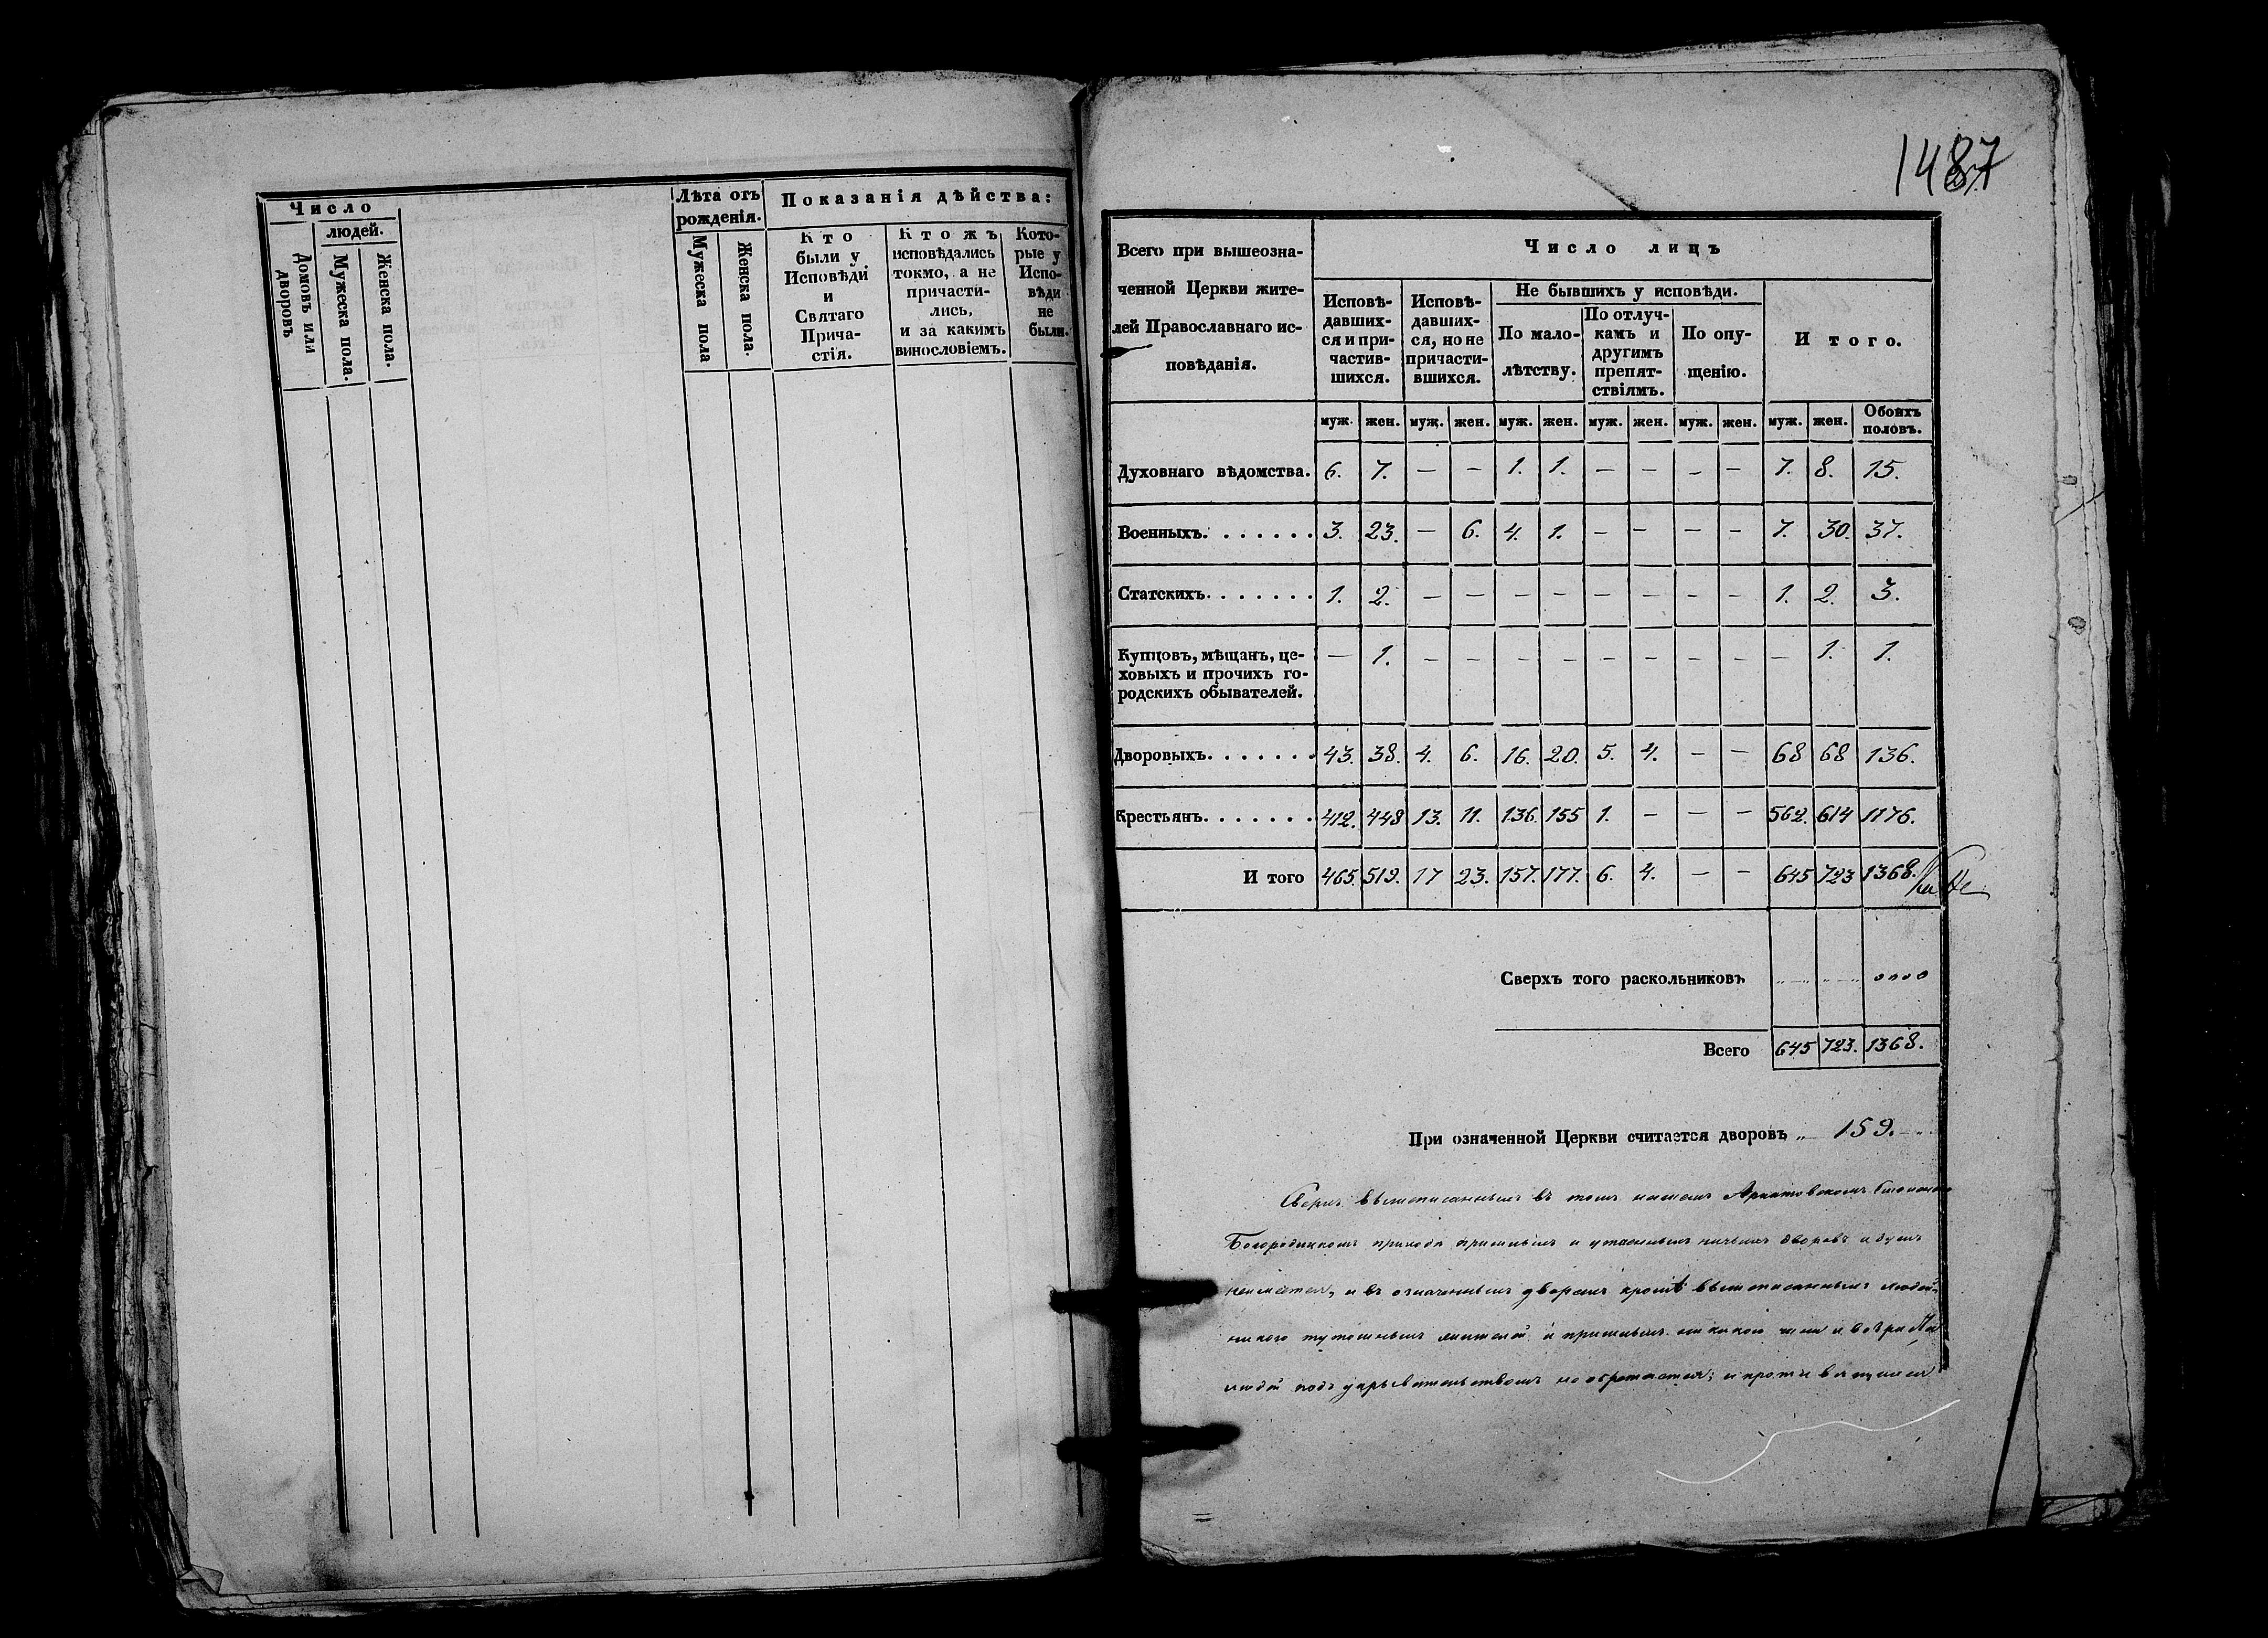 Число
людей.
Домовъ или дворовъ
Мужеска пола.
Женска пола.
Лѣта отъ
рожденія.
Мужеска пола
Женска пола.
Показанія дѣйства:
Кто
были у
Исповѣди
и
Святаго
Прича-
стія.
Кто жъ
исповѣдались
токмо, а не
причасти-
лись,
и за какимъ
винословіемъ.
Кото-
рые у
Испо-
вѣди
не
были.
1487
Всего при вышеозна-
ченной Церкви жите-
лей Православнаго ис-
повѣданія.
Число лицъ
Исповѣ-
давших-
ся и при-
частив-
шихся.
Исповѣ-
давших-
ся, но не
причасти-
вшихся.
Не бывшихъ у исповѣди.
По мало-
лѣтству.
По отлуч-
камъ и
другимъ
препят-
ствіямъ.
По опу-
щенію.
И того.
муж. жен. муж. жен. муж. жен. муж. жен. муж. жен. муж. жен. Обоихъ половъ.
Духовнаго вѣдомства. 6. 7. — — 1. 1. — — — — 7. 8. 15.
Военныхъ. . . . . . . 3. 23. — 6. 4. 1. — — — — 7. 30. 37.
Статскихъ. . . . . . . 1. 2. — — — — — — — — 1. 2. 3.
Купцовъ, мѣщанъ, це-
ховыхъ и прочихъ го-
родскихъ обывателей. — 1. — — — — — — — — — 1. 1.
Дворовыхъ. . . . . . . 43. 38. 4. 6. 16. 20. 5. 4. — — 68 68 136.
Крестьянъ. . . . . . . 412. 448 13. 11. 136. 155 1. — — — 562. 614 1176.
И того 465. 519. 17 23. 157. 177. 6. 4. — — 645 723 1368.
Сверхъ того раскольниковъ
Всего 645 723. 1368.
При означенной Церкви считается дворовъ 159.
Сверхъ вышеписанныхъ въ томъ нашемъ
Богородицкомъ приходѣ и утаенныхъ дворовъ и душъ
и въ означенныхъ дворахъ кромѣ вышеписанныхъ людей,
никого тутошныхъ жителей и пришлыхъ
людей подъ укрывательствомъ не обретается; и